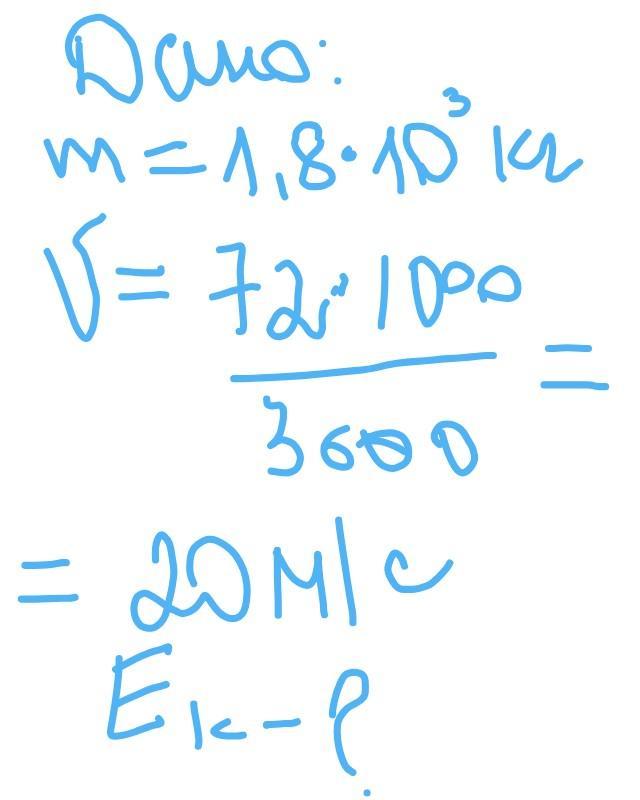 Дано:
m = 1,8·10³ кг
V = 72·1000
3600 =
= 20 м/с
Eк - ?